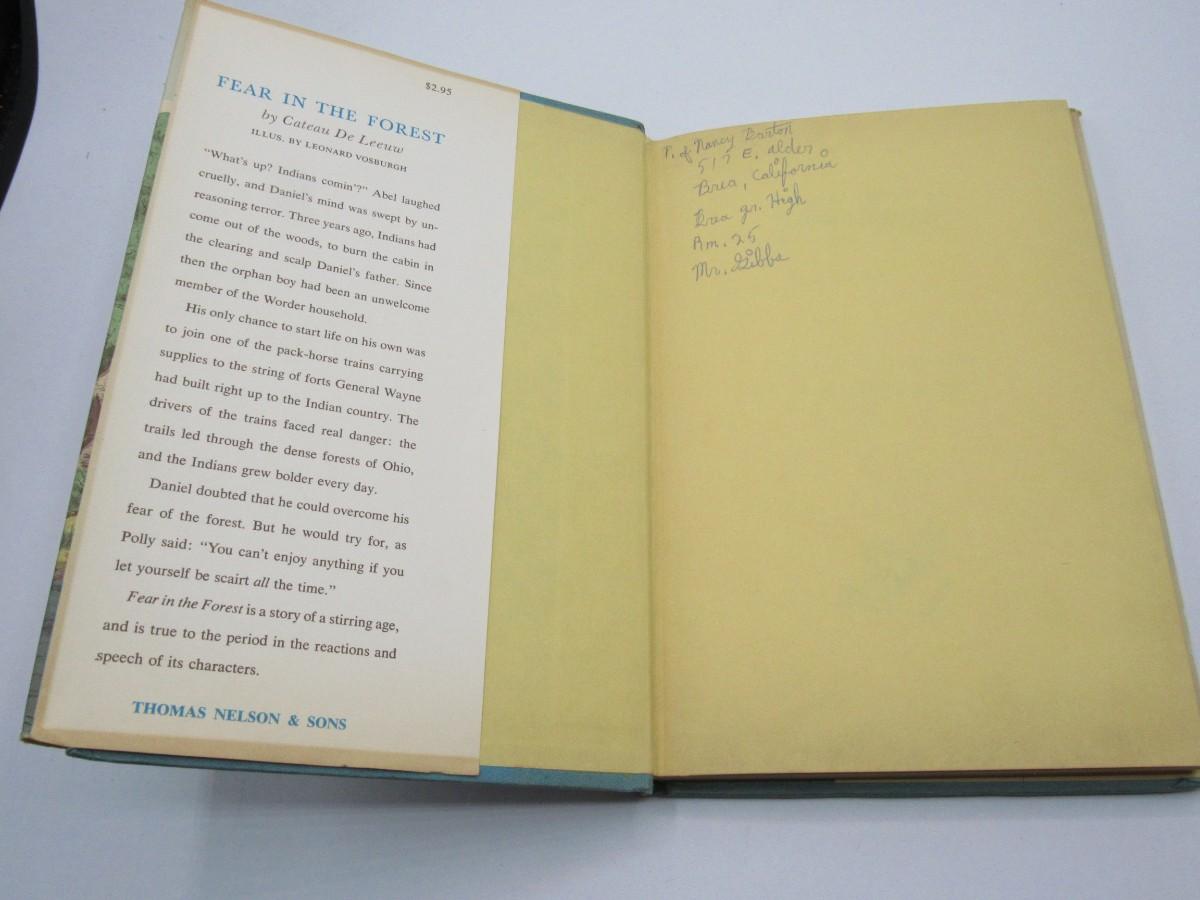 $2.95
FEAR IN THE FOREST
by Cateau De Leeuw
ILLUS. BY LEONARD VOSBURGH
“What’s up? Indians comin’?” Abel laughed
cruelly, and Daniel’s mind was swept by un-
reasoning terror. Three years ago, Indians had
come out of the woods, to burn the cabin in
the clearing and scalp Daniel’s father. Since
then the orphan boy had been an unwelcome
member of the Worder household.
His only chance to start life on his own was
to join one of the pack-horse trains carrying
supplies to the string of forts General Wayne
had built right up to the Indian country. The
drivers of the trains faced real danger: the
trails led through the dense forests of Ohio,
and the Indians grew bolder every day.
Daniel doubted that he could overcome his
fear of the forest. But he would try for, as
Polly said: “You can’t enjoy anything if you
let yourself be scairt all the time.”
Fear in the Forest is a story of a stirring age,
and is true to the period in the reactions and
speech of its characters.
THOMAS NELSON & SONS
P. of Nancy Barton
517 E. alder
Brea, California
Brea gr. High
Rm. 25
Mr. Gibbs